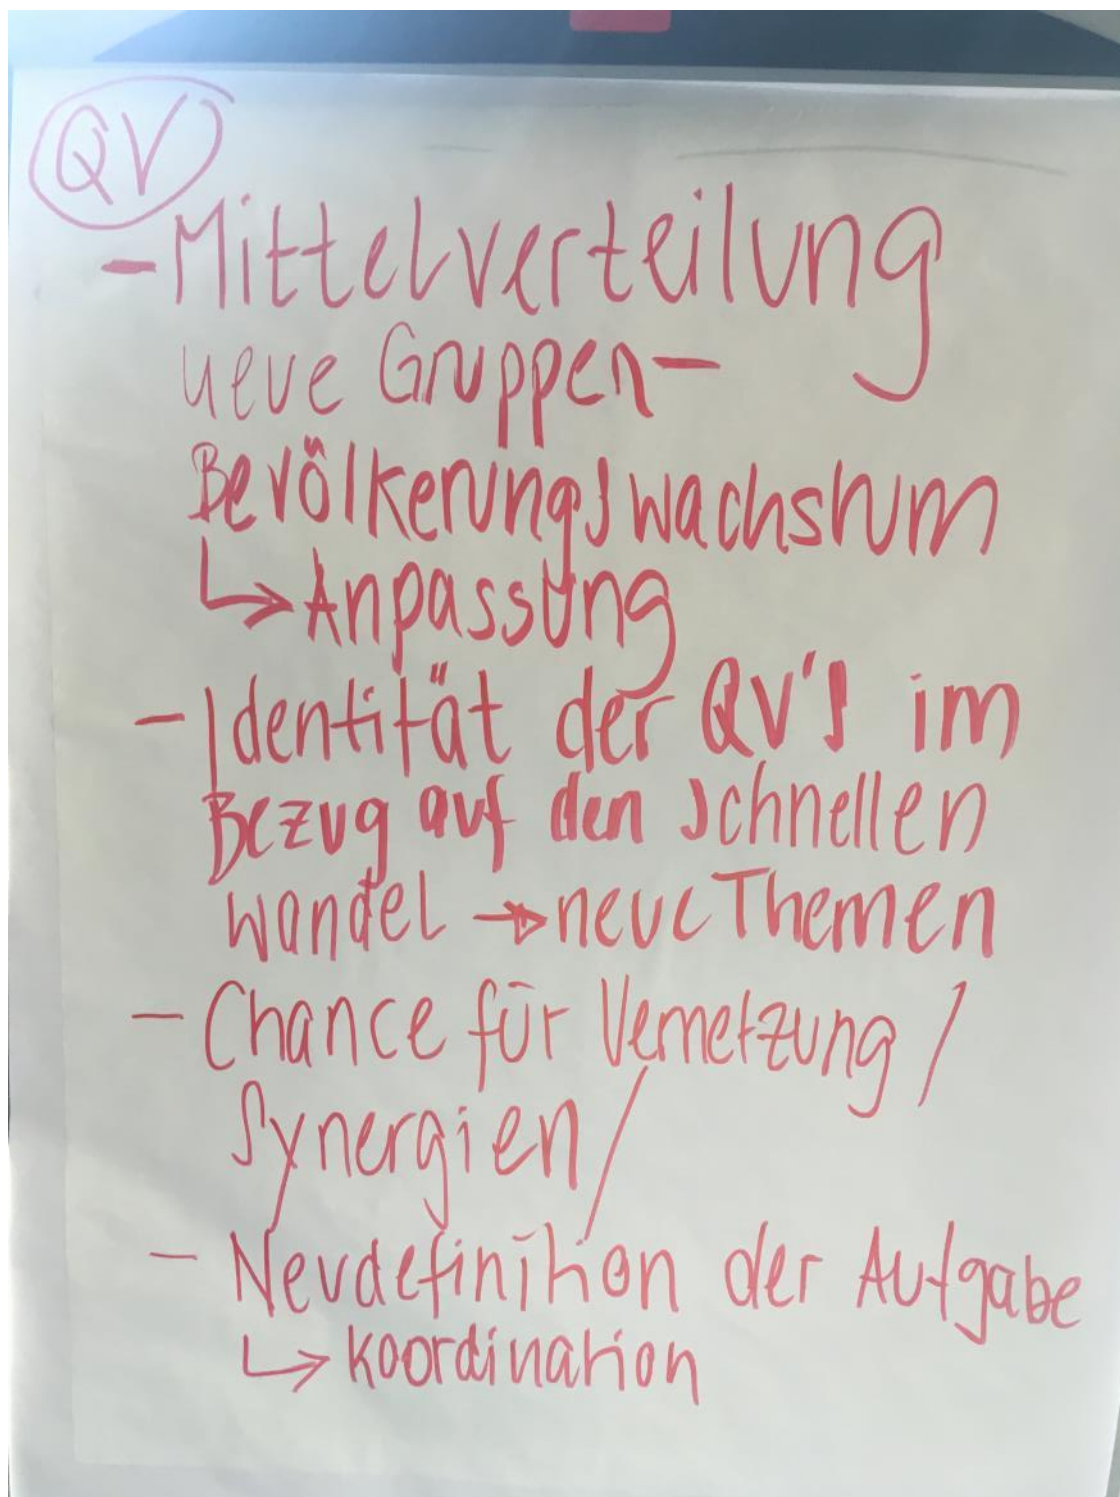 QV
- Mittelverteilung
neue Gruppen -
Bevölkerungswachstum
↳ Anpassung
- Identität der QV's im
Bezug auf den schnellen
Wandel → neue Themen
- Chance für Vernetzung /
Synergien /
- Neudefinition der Aufgabe
↳ Koordination